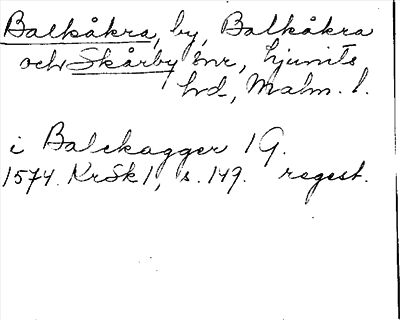 Balkåkra, by, Balkåkra
och Skårby snr, Ljunits
hd, Malm. l.
i Balckagger 1 G.
1574. KrSk 1, s. 149. regest.